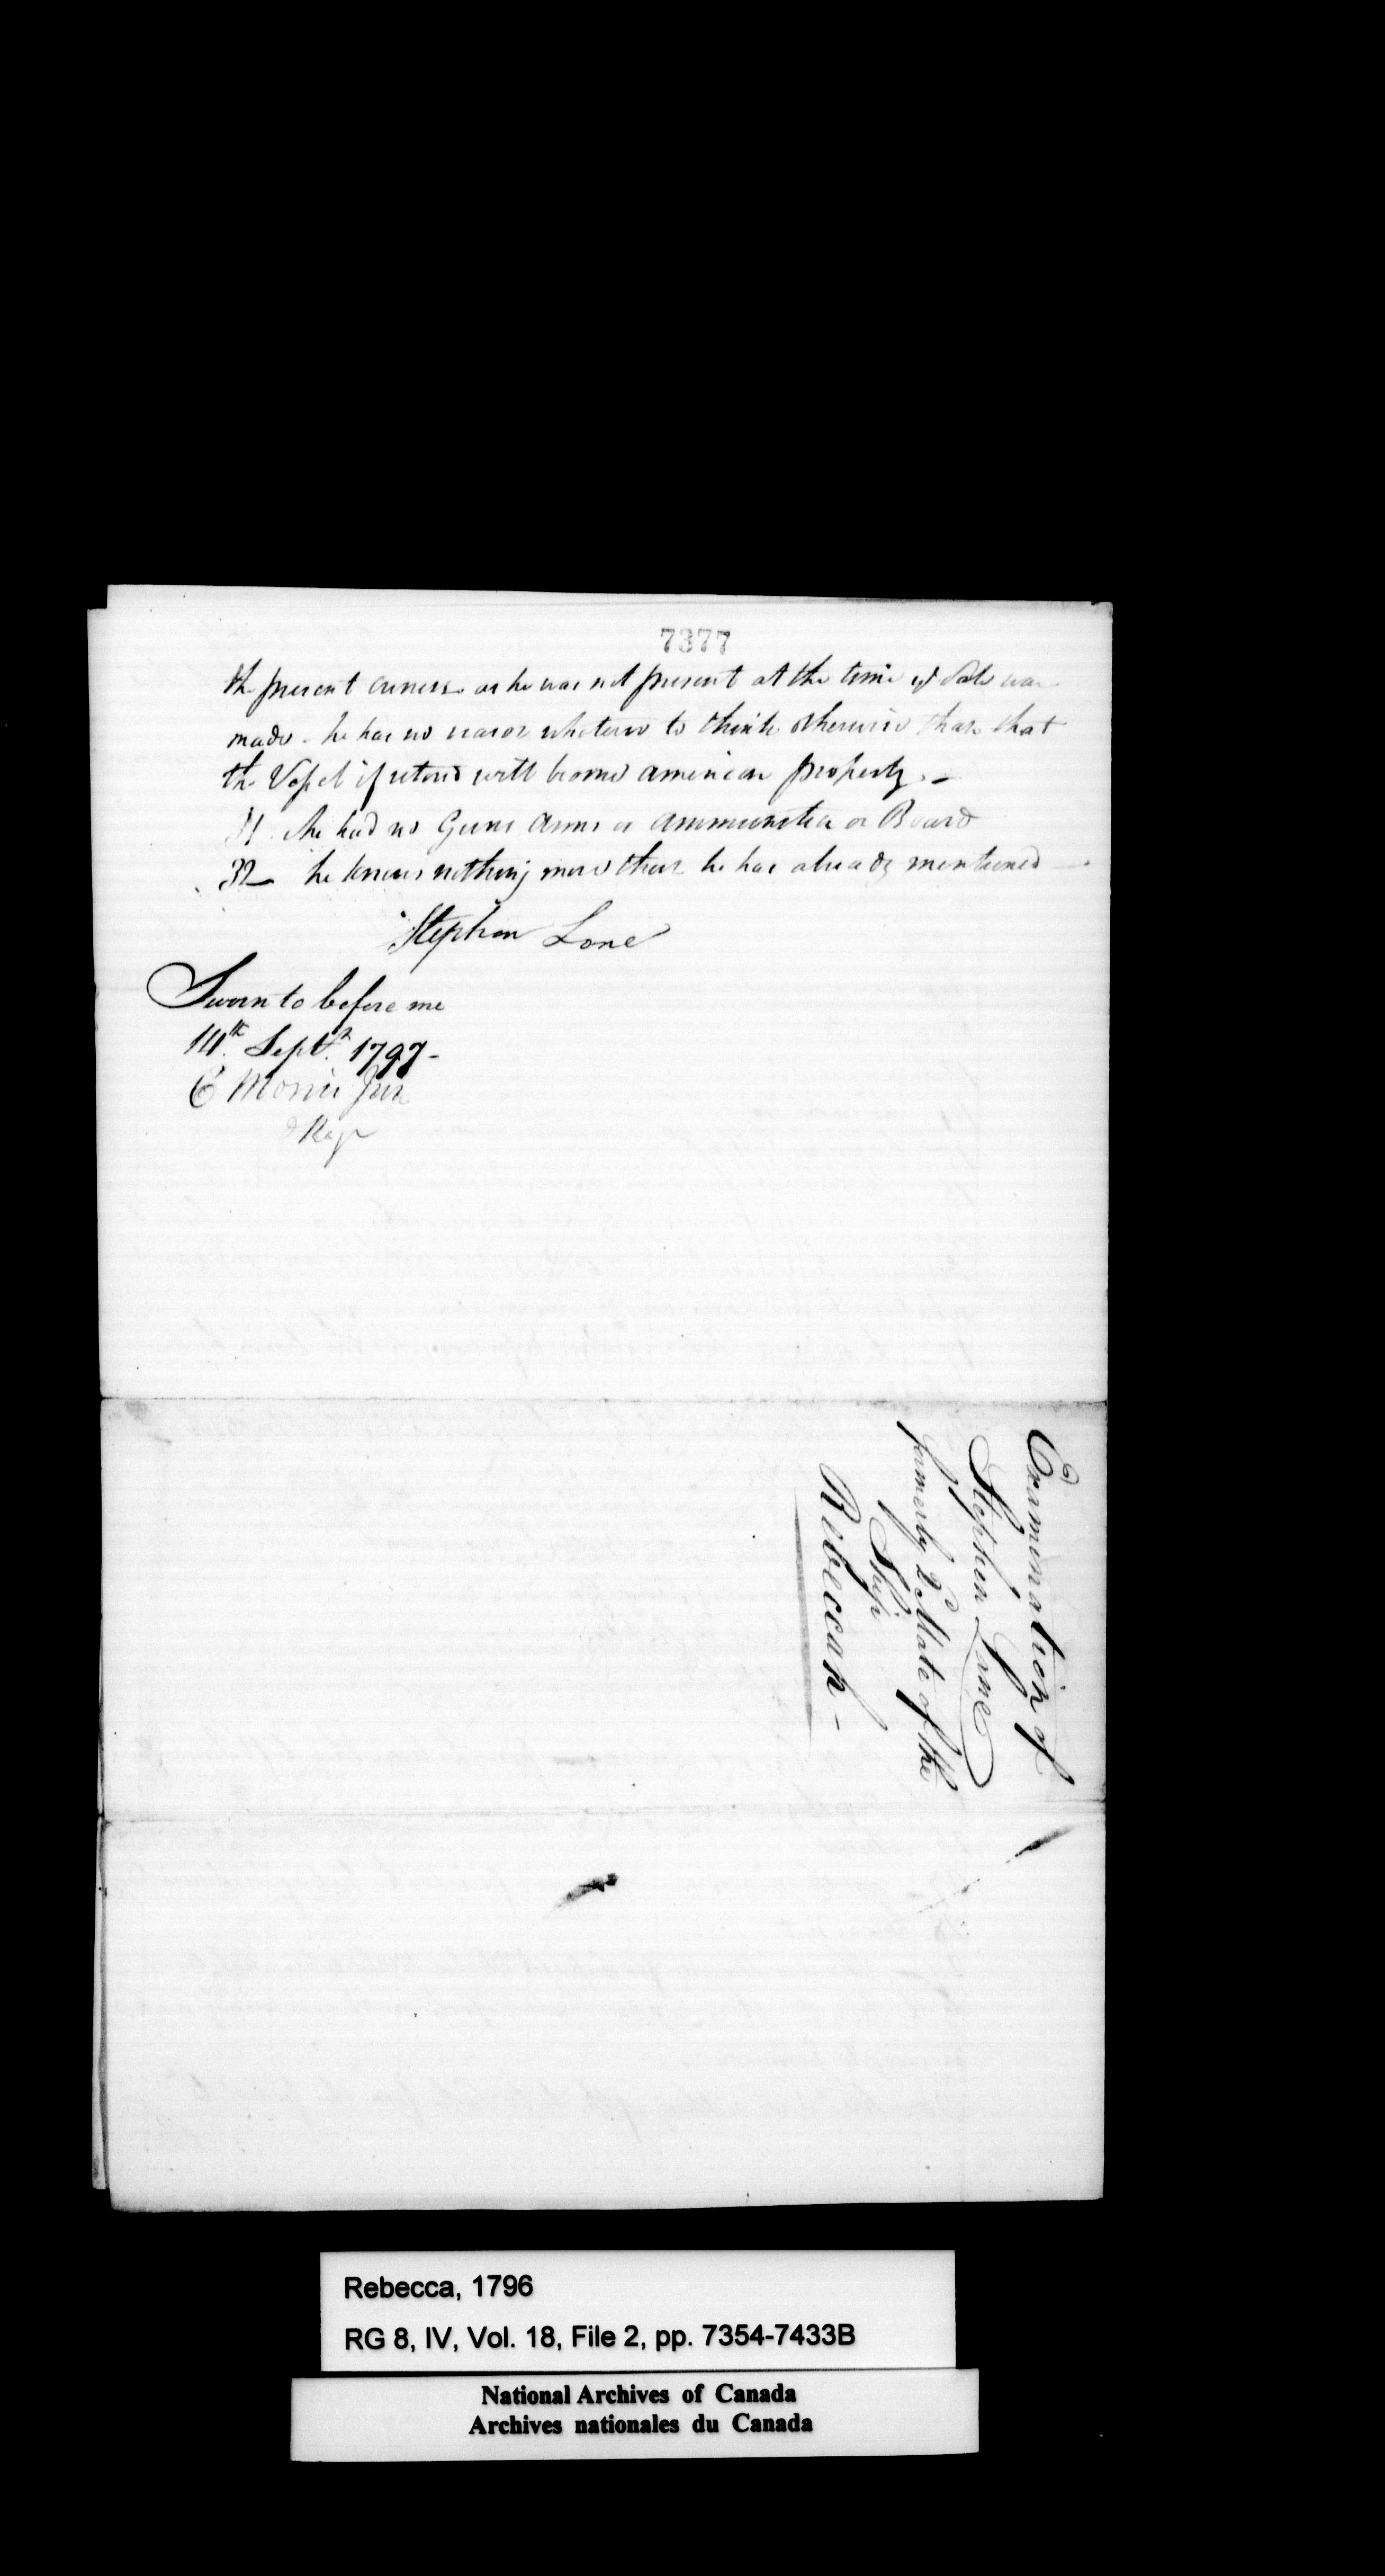 7377
the present owners as he was not present at the time yͤ Sale was
made - he has no reason whatever to think otherwise than that
the Vessel if restored will become american property. -
31. She had no Guns Arms or ammunition on Board
32 he knows nothing more than he has already mentioned -
Stephen Lane
Sworn to before me
14th Septr. 1797 -
C Morris Junr
Regr
Examination of
Stephen Lane
formerly 2d Mate of the
Ship
Rebeccah -
Rebecca, 1796
RG 8, IV, Vol. 18, File 2, pp. 7354-7433B
National Archives of Canada
Archives nationales du Canada